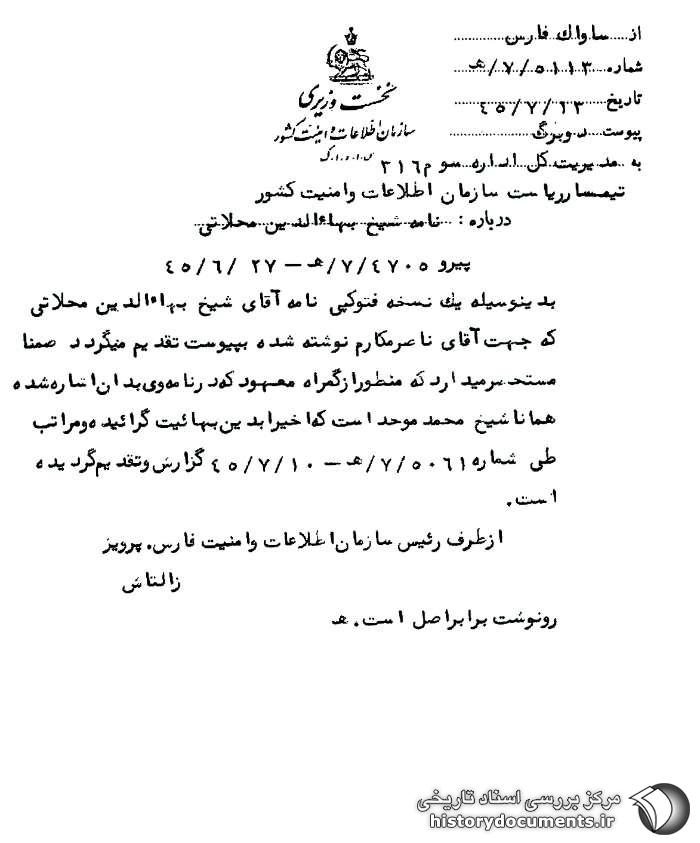 از ساواك فارس
شماره ٥١١٣/٧/هـ
تاریخ ٤٥/٧/١٣
پیوست دوبرگ
نخست وزیری
سازمان اطلاعات و امنیت کشور
س.ا.و.ا.ک
به مدیریت کل اداره سوم ٣١٦
تیمسار ریاست سازمان اطلاعات وامنیت کشور
درباره : نامه شیخ بهاءالدین محلاتی
پیرو ٤٧٠٥/٧/هـ – ٢٧ /٤٥/٦
بدینوسیله یك نسخه فتوکپی نامه آقای شیخ بهاءالدین محلاتی
که جهت آقای ناصرمکارم نوشته شده بپیوست تقدیم میگردد ضمنا
مستحضرمیدارد که منظورازگمراه معهود که درنامه وی بدان اشاره شده
همانا شیخ محمد موحد است که اخیرا بدین بهائیت گرائیده ومراتب
طی شماره ٥٠٦١/٧/هـ – ٤٥/٧/١٠ گزارش وتقدیم گردیده
است .
ازطرف رئیس سازمان اطلاعات وامنیت فارس. پرویز
زالتاش
رونوشت برابراصل است. هـ
مرکز بررسی اسناد تاریخی
historydocuments.ir